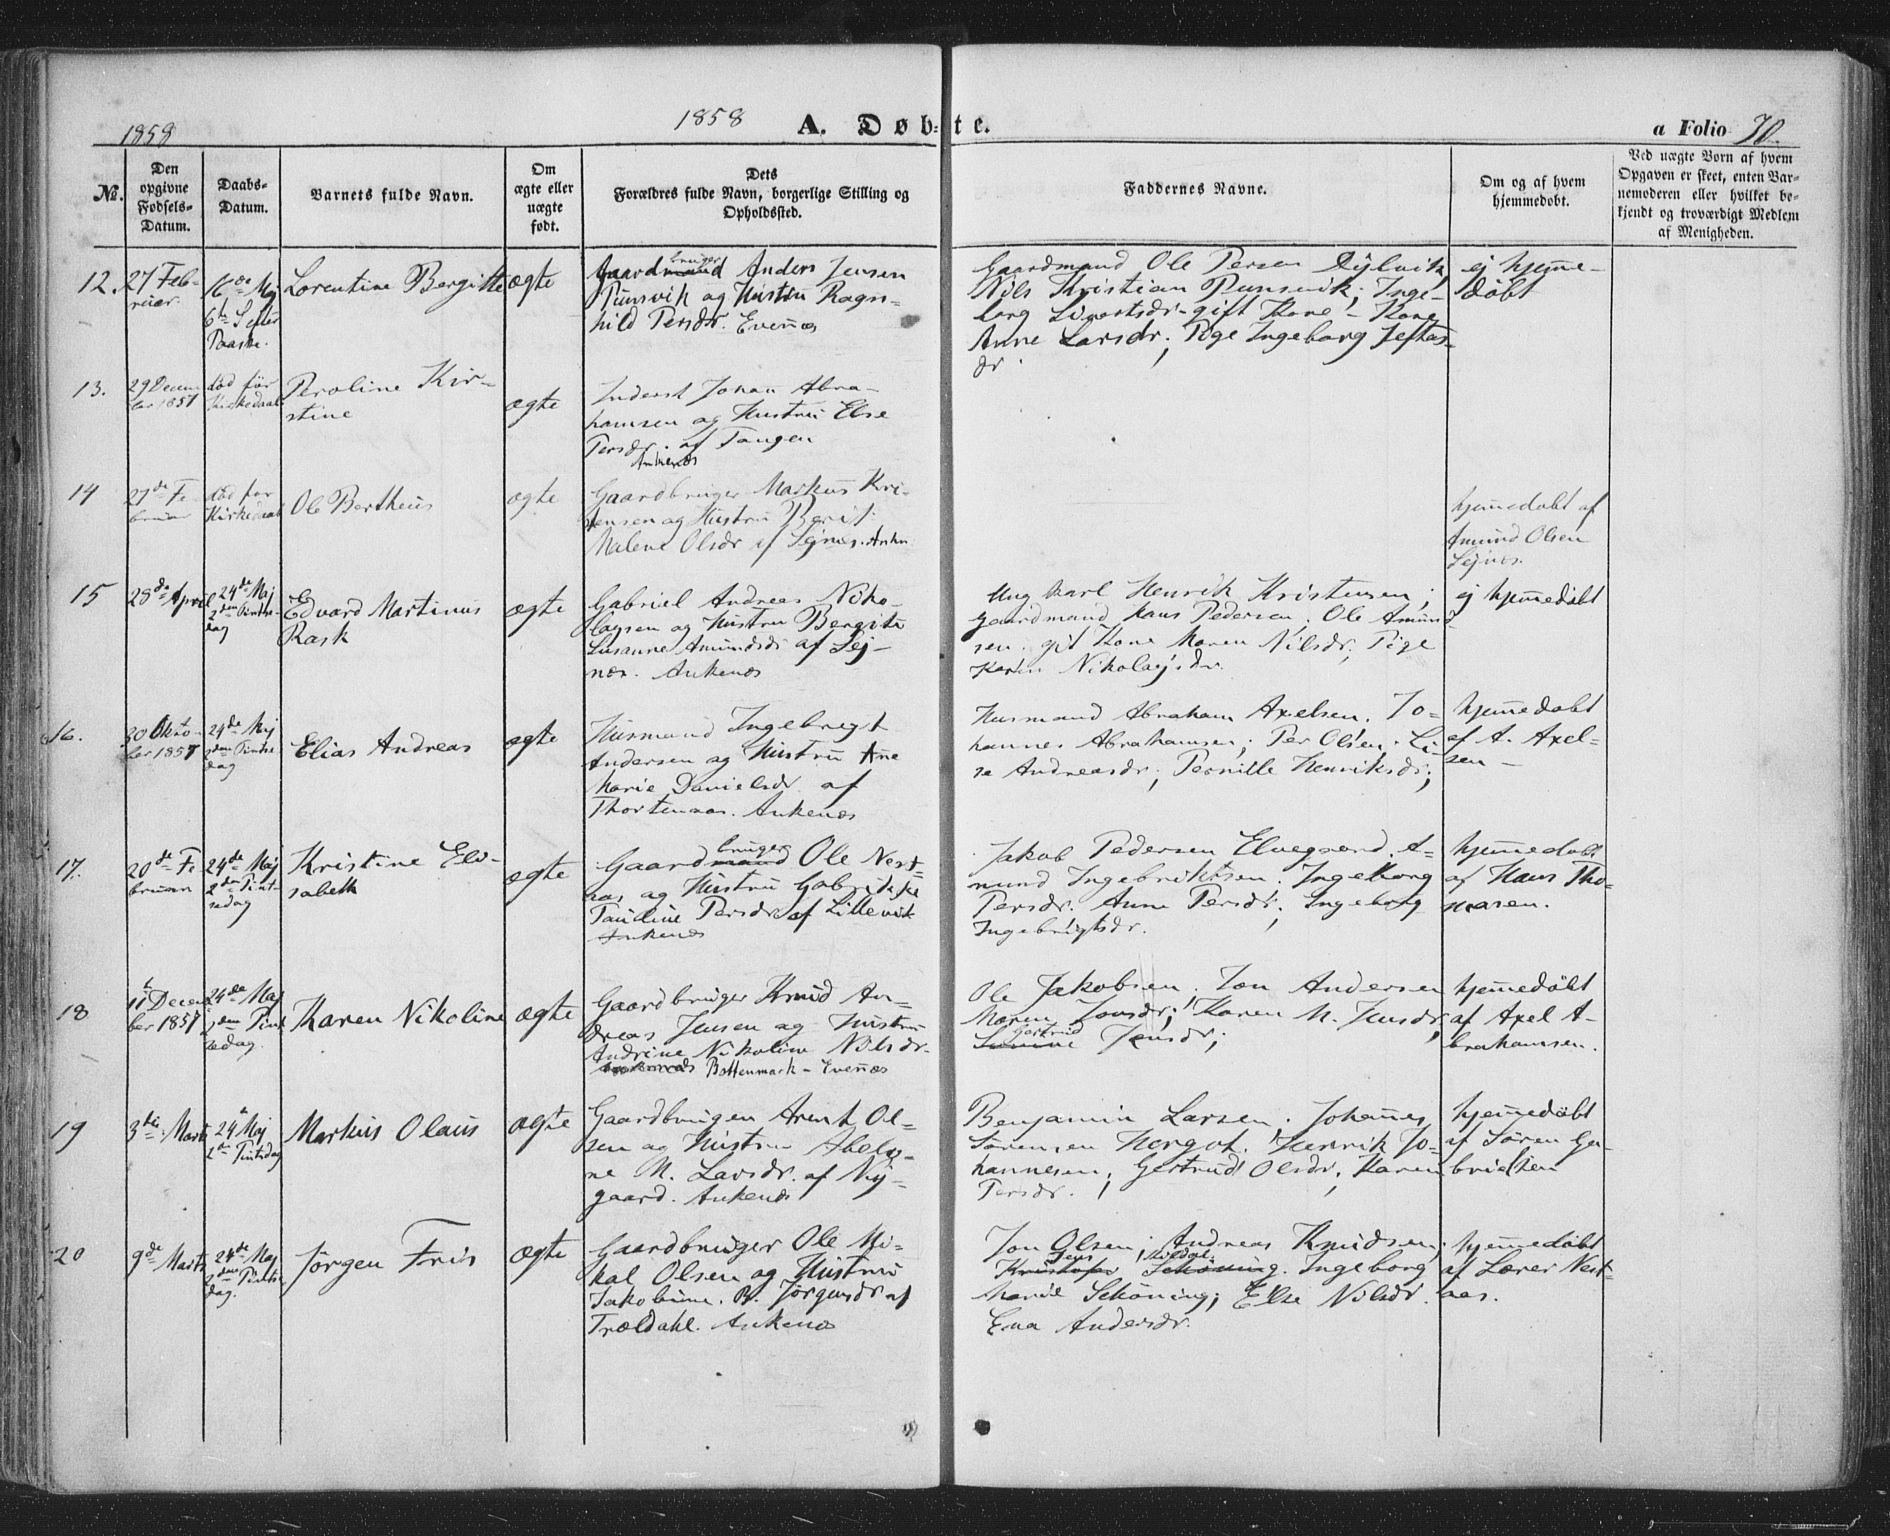 1858
1858
A. Døbte.
a Folio 70.
No.
Den opgivne Fødsels-Datum.
Daabs-Datum.
Barnets fulde Navn.
Om ægte eller uægte født.
Dets Forældres fulde Navn, borgerlige Stilling og Opholdssted.
Faddernes Navne.
Om og af hvem hjemmedøbt.
Ved uægte Børn af hvem Opgaven er skeet, enten Barnemoderen eller hvilket bekjendt og troværdigt Medlem af Menigheden.
12.
27 Feb-
ruar.
16de Maj
6te S. efter
Paaske.
Lorentine Bergitte
ægte
Gaardbruger Anders Jensen
Punsvik og Hustru Ragn-
hild Persdr. Evenæs
Gaardmand Ole Persen
Nils Kristian Punsvik; Inge-
borg Sivertsdr. gift Kone - Kone
Anne Larsdr; Pige Ingeborg Jeftas-
dr.
ej hjemme-
døbt
13.
29 Decem-
ber 1857
død før
Kirkedaab
Peroline Kir-
stine
ægte
Inderst Johan Abra-
hamsen og Hustru Else
Persdr. af Tangen
Ankenæs
14
27de Fe-
bruar
død før
Kirkedaab
Ole Bertheus
ægte
Gaardbruger Markus Kri-
stensen og Hustru Berit
Malene Olsdr af Lejnes. Anken
hjemmedøbt af
Amund Olsen
Lejnes.
15
28de April
24de Maj
2den Pintse-
dag
Edvard Martinus
Rask
ægte
Gabriel Andreas Niko-
laysen og Hustru Bergite
Susanne Amundsdr af Lej-
næs. Ankenæs
Ung Karl Henrik Kristensen;
gaardmand Hans Pedersen; Ole Amund-
sen. gift Kone Maren Nilsdr; Pige
Karen Nikolajsdr.
ej hjemmedøbt
16.
20 Okto-
ber 1857
24de Maj
2den Pintse
dag
Elias Andreas
ægte
Husmand Ingebrigt
Andersen og Hustru Ane
Marie Danielsdr. af
Ankenæs
Husmand Abraham Axelsen. Jo-
hannes Abrahamsen; Per Olsen. Li-
se Andreasdr; Pernille Henriksdr;
hjemmedøbt
af A. Axel-
sen -
17.
20de Fe-
bruar
24de Maj
2den Pint-
sedag
Kristine Eli-
sabeth
ægte
Gaardbruger Ole Nest-
aas og Hustru
Pauline Persdr af Lillevik
Ankenæs
Jakob Pedersen Elvegaard. A-
mund Ingebriktsen. Ingeborg
Persdr. Anne Persdr; Ingeborg
Ingebrigtsdr.
hjemmedøbt
af Hans Tho-
masen.
18
11te Decem-
ber 1857
24de Maj
2den Pint-
sedag.
Karen Nikoline
ægte
Gaardbruger Knud An-
dreas Jensen og Hustru
Andrine Nikoline Nilsdr.
Bottenmark - Evenæs
Ole Jakobsen. Jon Andersen
Maren Jonsdr; Karen M. Jensdr,
Gertrud Jensdr;
hjemmedøbt
af Axel A-
brahamsen.
19
3die Marts
24 Maj
2den Pintsdag
Markus Olaus
ægte
Gaardbrugen Arent Ol-
sen og Hustru Abelo-
ne M. Larsdr. af Ny-
gaard. Ankenæs
Benjamin Larsen; Johannes
Sørensen Hergot. Henrik Jo-
hannesen; Gertrud Olsdr; Karen
Persdr.
hjemmedøbt
af Søren Ga-
brielsen
20
9de Marts
24de Maj
2den Pintse-
dag.
Jørgen Friis
ægte
Gaardbruger Ole Mi-
kal Olsen og Hustru
Jakobine. B. Jørgensdr af
Trældahl. Ankenæs
Jon Olsen; Andreas Knudsen;
Jens
Kristofer Schöning. Ingeborg
Marie Schöning; Else Nilsdr.
Eva Andersdr.
hjemmedøbt
af Lærer Nest-
aas.